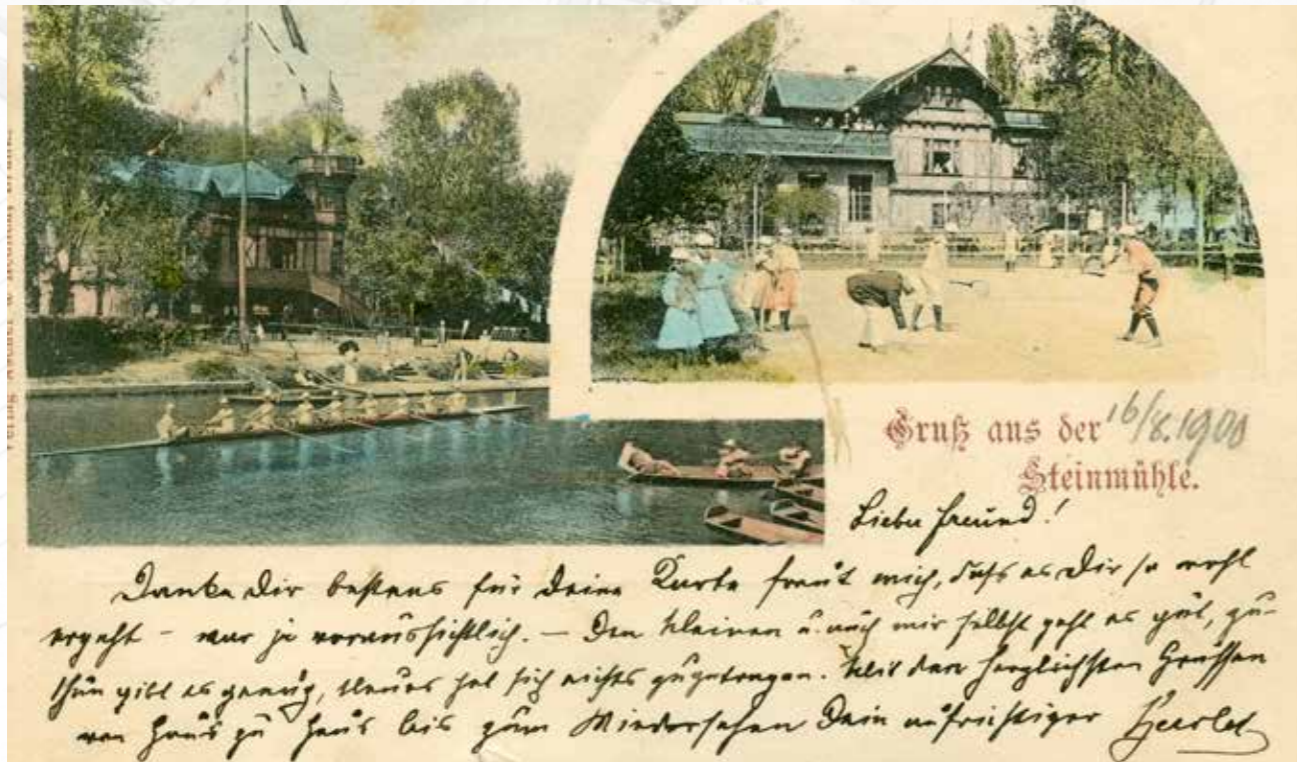 Gruß aus der
Steinmühle.
16/8.1900
Lieber Freund!
Danke Dir bestens für Deine Karte freut mich, daß es Dir so wohl
ergeht – war ja voraussichtlich. – Den Kleinen u. auch mir selbst geht es gut, zu
thun gibt es genug, Neues hat sich nichts zugetragen. Mit den herzlichsten Grüssen
von Haus zu Haus bis zum Wiedersehen Dein aufrichtiger